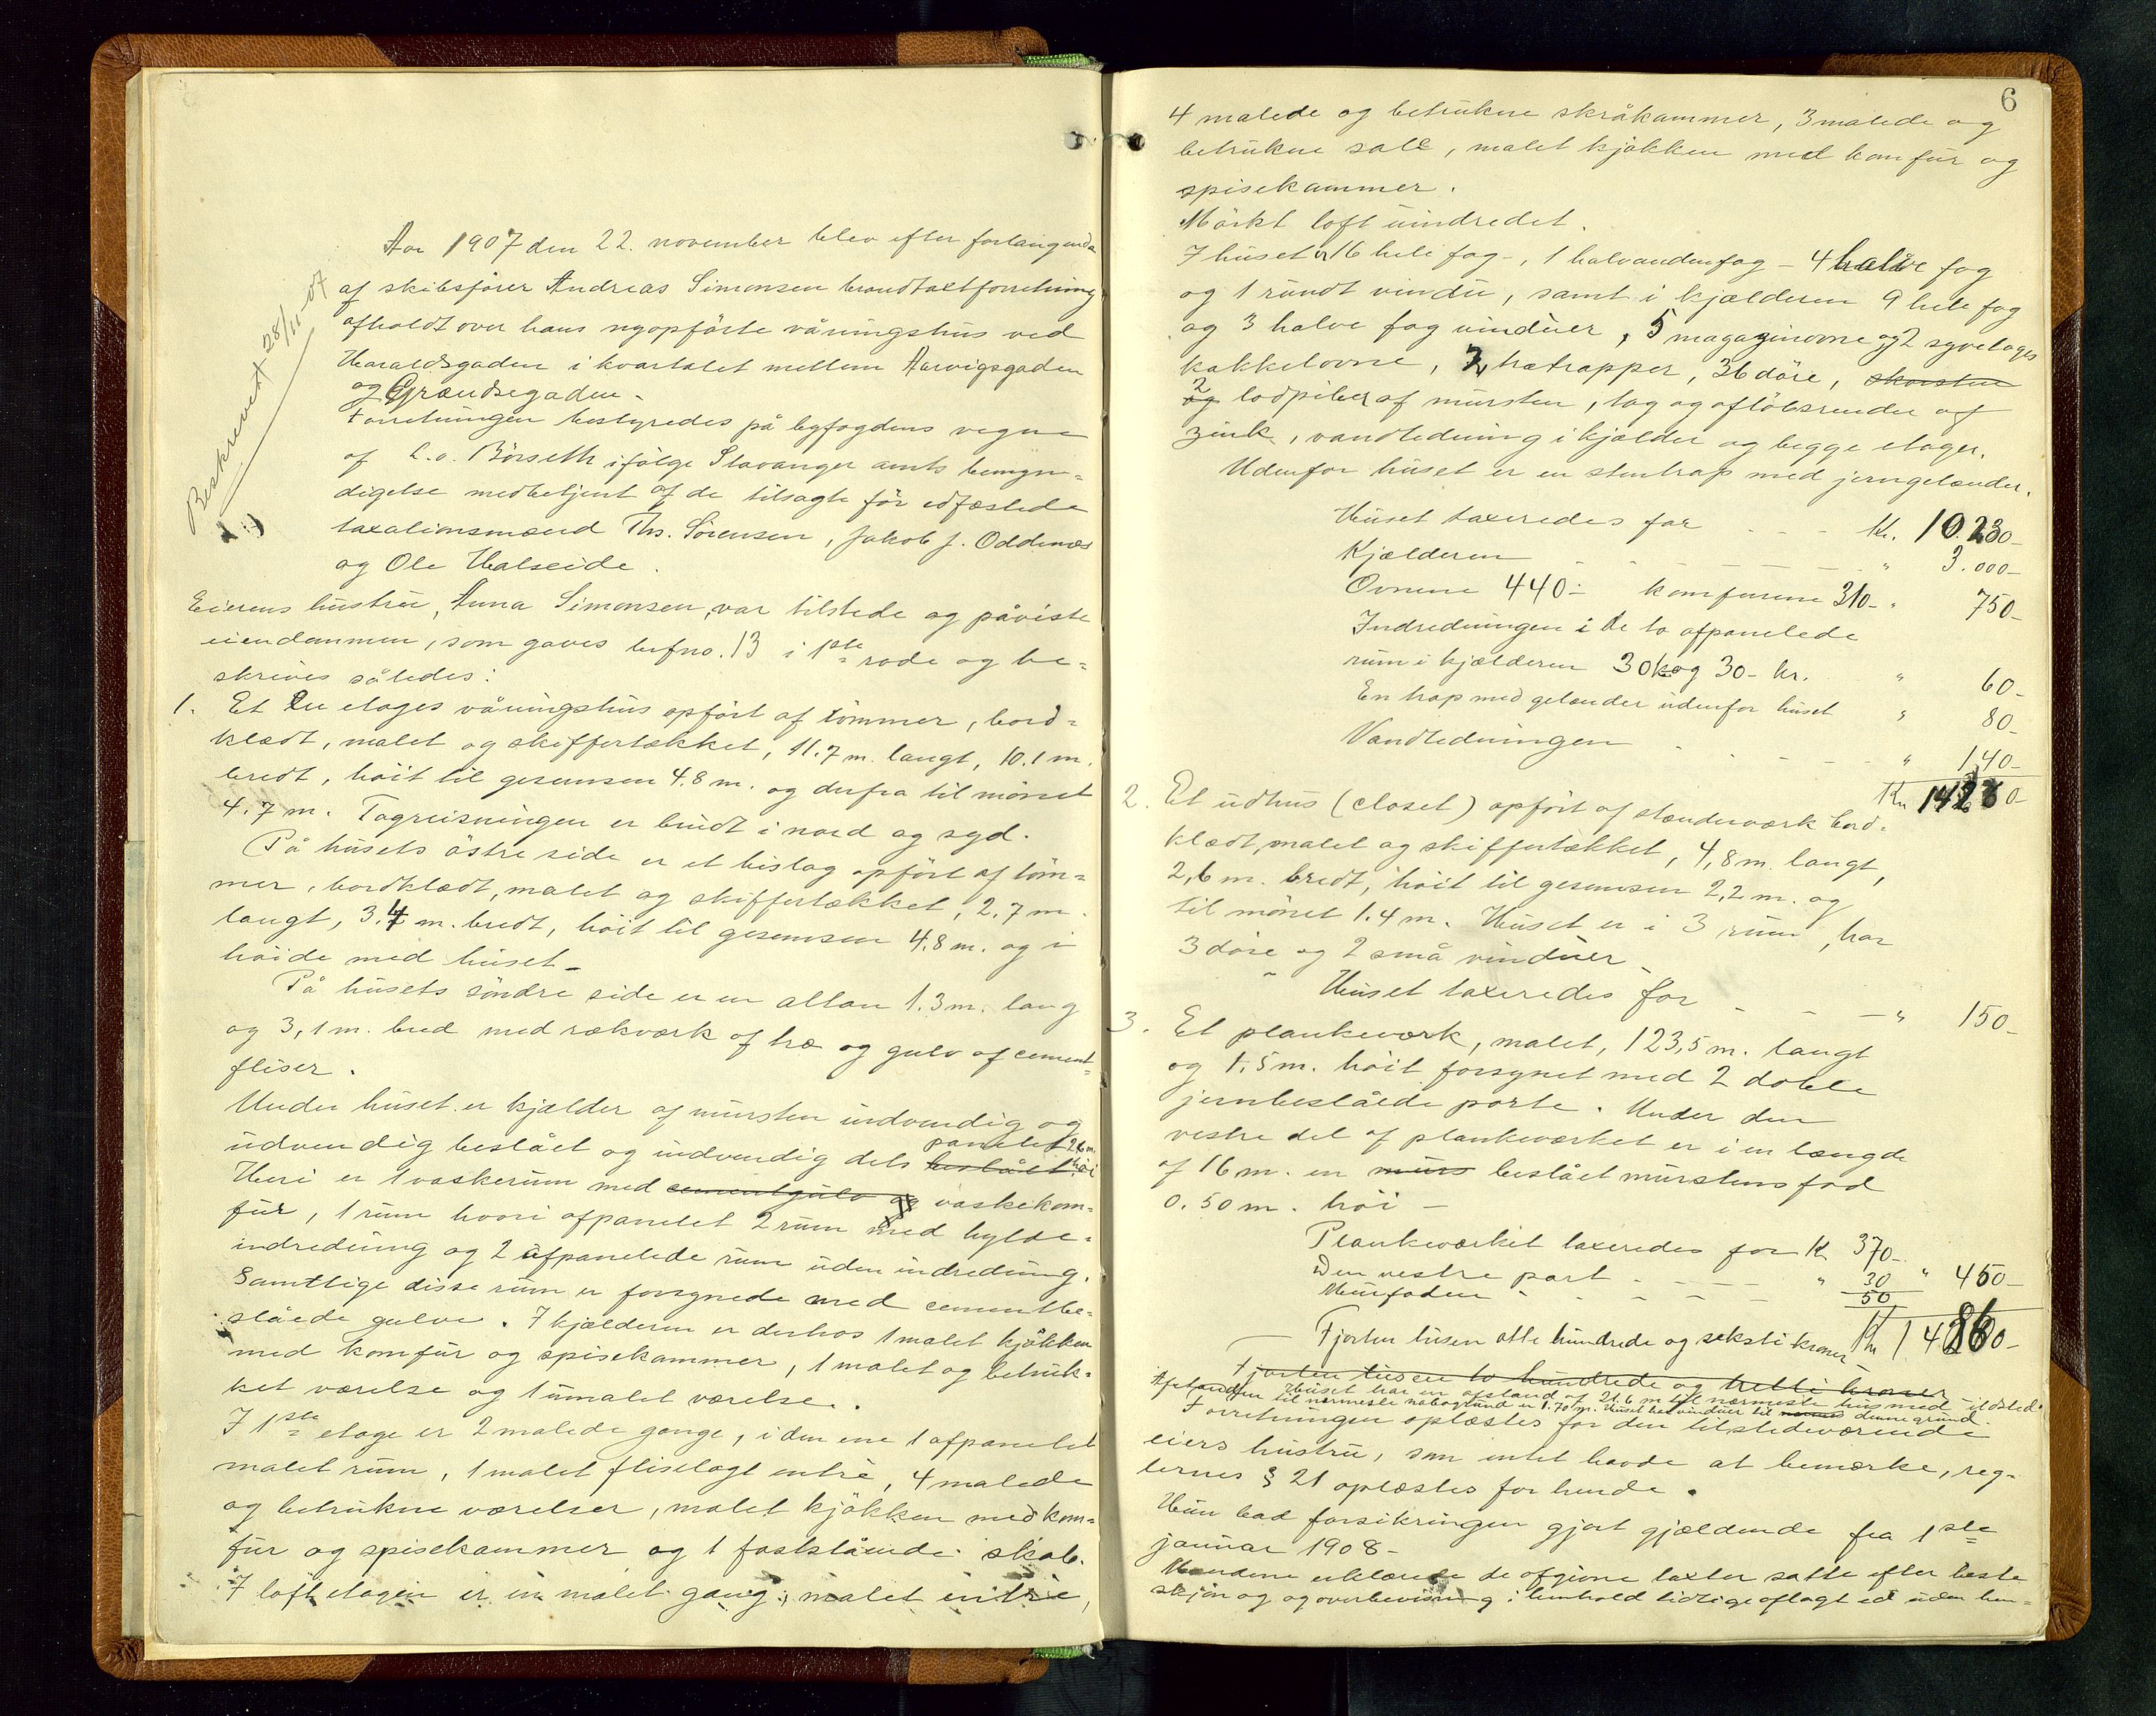 Beskrevet 28/11-07
Aar 1907 den 22. november blev efter forlangende
af skibsfører Andreas Simonsen brandtaxtforretning
afholdt over hans nyopførte våningshus ved
Haraldsgaden i kvartalet mellem Aarvigsgaden
og Grændsegaden.
Forretningen bestyredes på byfogdens vegne
af L. o. Börseth ifølge Stavanger amts bemyn=
digelse medbetjent af de tilsagte før edfæstede
taxationsmænd Ths. Sörensen, Jakob J. Oddenæs
og Ole Halseide.
Eierens hustru, Anna Simonsen, var tilstede og påviste
eiendommen, som gaves brfno. 13 i 1ste rode og be=
skrives således:
1. Et to etages våningshus opført af tømmer, bord=
klædt, malet og skiffertækket, 11.7 m. langt, 10.1 m.
bredt, høit til gesemsen 4.8 m. og derfra til mønet
4.7 m. Tagreisningen er brudt i nord og syd.
På husets östre side er et bislag opført af töm=
mer, bordklædt, malet og skiffertækket, 2.7 m.
langt, 3.4 m. bredt, høit til gesemsen 4.8 m. og i
høide med huset.
På husets söndre side er en altan 1.3 m. lang
og 3,1 m. bred med rækværk af træ og gulv af cement=
fliser.
Under huset er kjælder af mursten indvendig og
udvendig beslået og indvendig dels beslået panelet 2.6 m. høi
Heri er 1 vaskerum med cementgulv og vaskekom=
für, 1 rum hvori afpanelet 2 rum med hylde=
indredning og 2 afpanelede rum uden indredning.
Samtlige disse rum er forsynede med cementbe=
slåede gulve. I kjælderen er derhos 1 malet kjökken
med komfür og spisekammer, 1 malet og betruk=
ket værelse og 1 umalet værelse.
I 1ste etage er 2 malede gange, i den ene 1 afpanelet
malet rum, 1 malet fliselagt entré, 4 malede
og betrukne værelser, malet kjökken med kom=
für og spisekammer og 1 faststående skab.
I loftetagen er en malet gang, malet entrée,
6
4 malede og betrukne skråkammer, 3 malede og
betrukne sale, malet kjökken med komfür og
spisekammer.
Mörkt loft uindredet.
I huset er 16 hele fag -, 1 halvandenfag - 4 halve fag
og 1 rundt vindu, samt i kjælderen 9 hele fag
og 3 halve fag vinduer, 5 magazinovne og 2 syvetages
kakkelovne, 3 trætrapper, 36 döre, skorsten
og 2 lodpiber af mursten, tag og aflöbsrender af
zink, vandledning i kjælder og begge etager.
Udenfor huset er en stentrap med jerngelænder.
Huset taxeredes for - - Kr. 10.230-
Kjælderen - - - " 3.000-
Ovnene 440- komfurene 310- " 750-
Indredningen i de to afpanelede
rum i kjælderen 30 k og 30- kr. " 60-
En trap med gelænder udenfor huset " 80-
Vandledningen - - - " 140-
Kr 14260-
2. Et udhus (closet) opført af stænderværk bord=
klædt, malet og skiffertækket, 4,8 m. langt,
2,6 m. bredt, høit til gesemsen 2,2 m. og
til mönet 1.4 m. Huset er i 3 rum, har
3 döre og 2 små vinduer.
Huset taxeredes for - - - " 150-
3. Et plankeværk, malet, 123,5 m. langt
og 1,5 m. høit forsynet med 2 doble
jernbeslåede porte. Under den
vestre del af plankeværket er i en længde
af 16 m. en murs beslået murstens fod
0.50 m. høi -
Plankeværket taxeredes for K 370-
Den vestre port - - - " 30 " 450-
Murfoden - - - 50
Fjorten tusen otte hundrede og seksti kroner Kr 14860-
Fjorten tusen to hundrede og tretti kroner
Huset har en afstand af 21.6 m til nærmeste hus med ildsted.
Afstanden til nærmeste nabogrund er 1.70 m. Huset har vinduer til denne grund.
Forretningen oplæstes for den tilstedeværende
eiers hustru, som intet havde at bemærke, reg=
lernes § 21 oplæstes for hende.
Hun bad forsikringen gjort gjældende fra 1ste
januar 1908-
Mændene erklærede de afgivne taxter satte efter beste
skjön og og overbevisning i henhold tidligeaflagt ed uden hen=